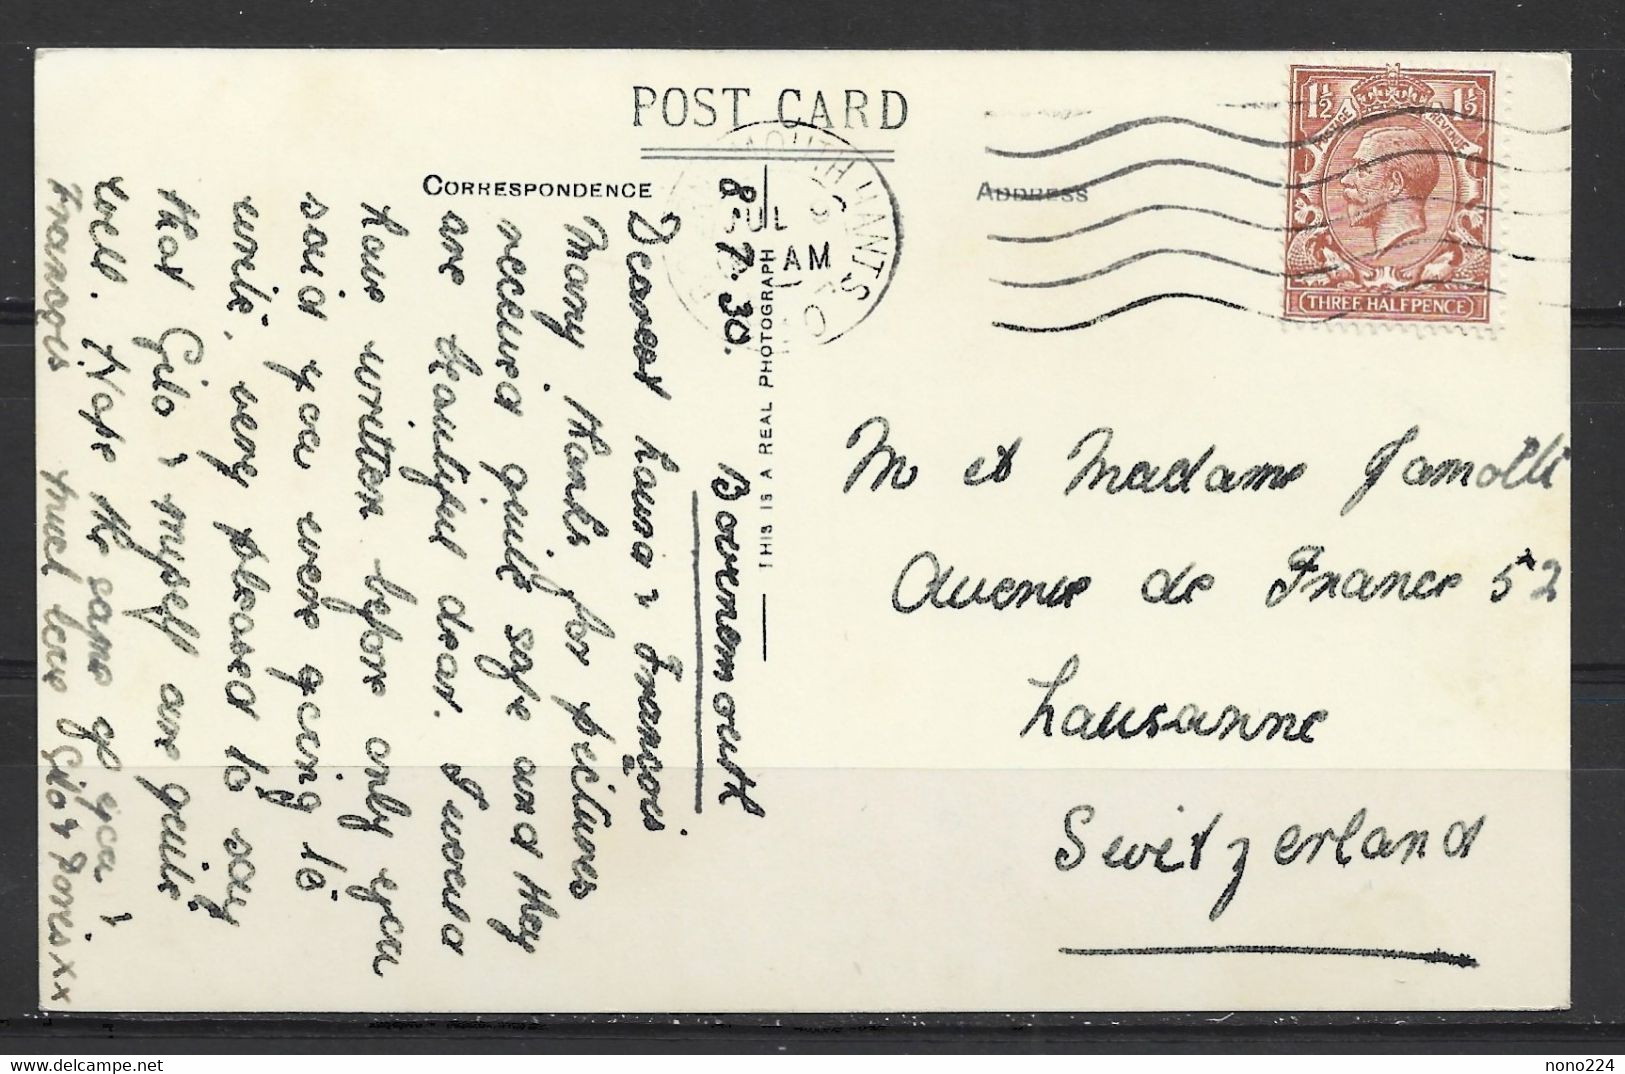 POST CARD
CORRESPONDENCE
ADDRESS
1½ 1½
POSTAGE REVENUE
THREE HALFPENCE
MOUTH HANTS
JUL
AM
THIS IS A REAL PHOTOGRAPH
8.7.30. Bournemouth
Dearest Louis & François
Many thanks for pictures
received quite safe and they
are beautiful dear. I would
have written before only you
said you were going to
write, very pleased to say
that Gilo & myself are quite
well. Hope the same of you &
François much love Gilo & Dorris xx
M et Madame Jamolli
Avenue de France 52
Lausanne
Switzerland
nono224